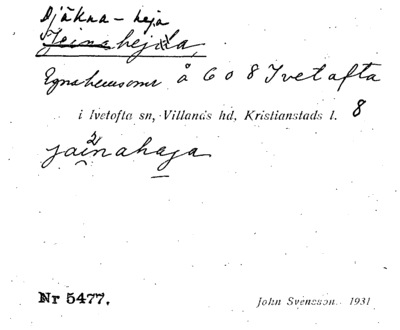 Djäkna-heja
Jeinahejdla,
Egnahemsomr å 608 Ivetofta
i Ivetofta sn, Villands hd, Kristianstads l. 8
jainahaja
Nr 5477.
John Svensson 1931